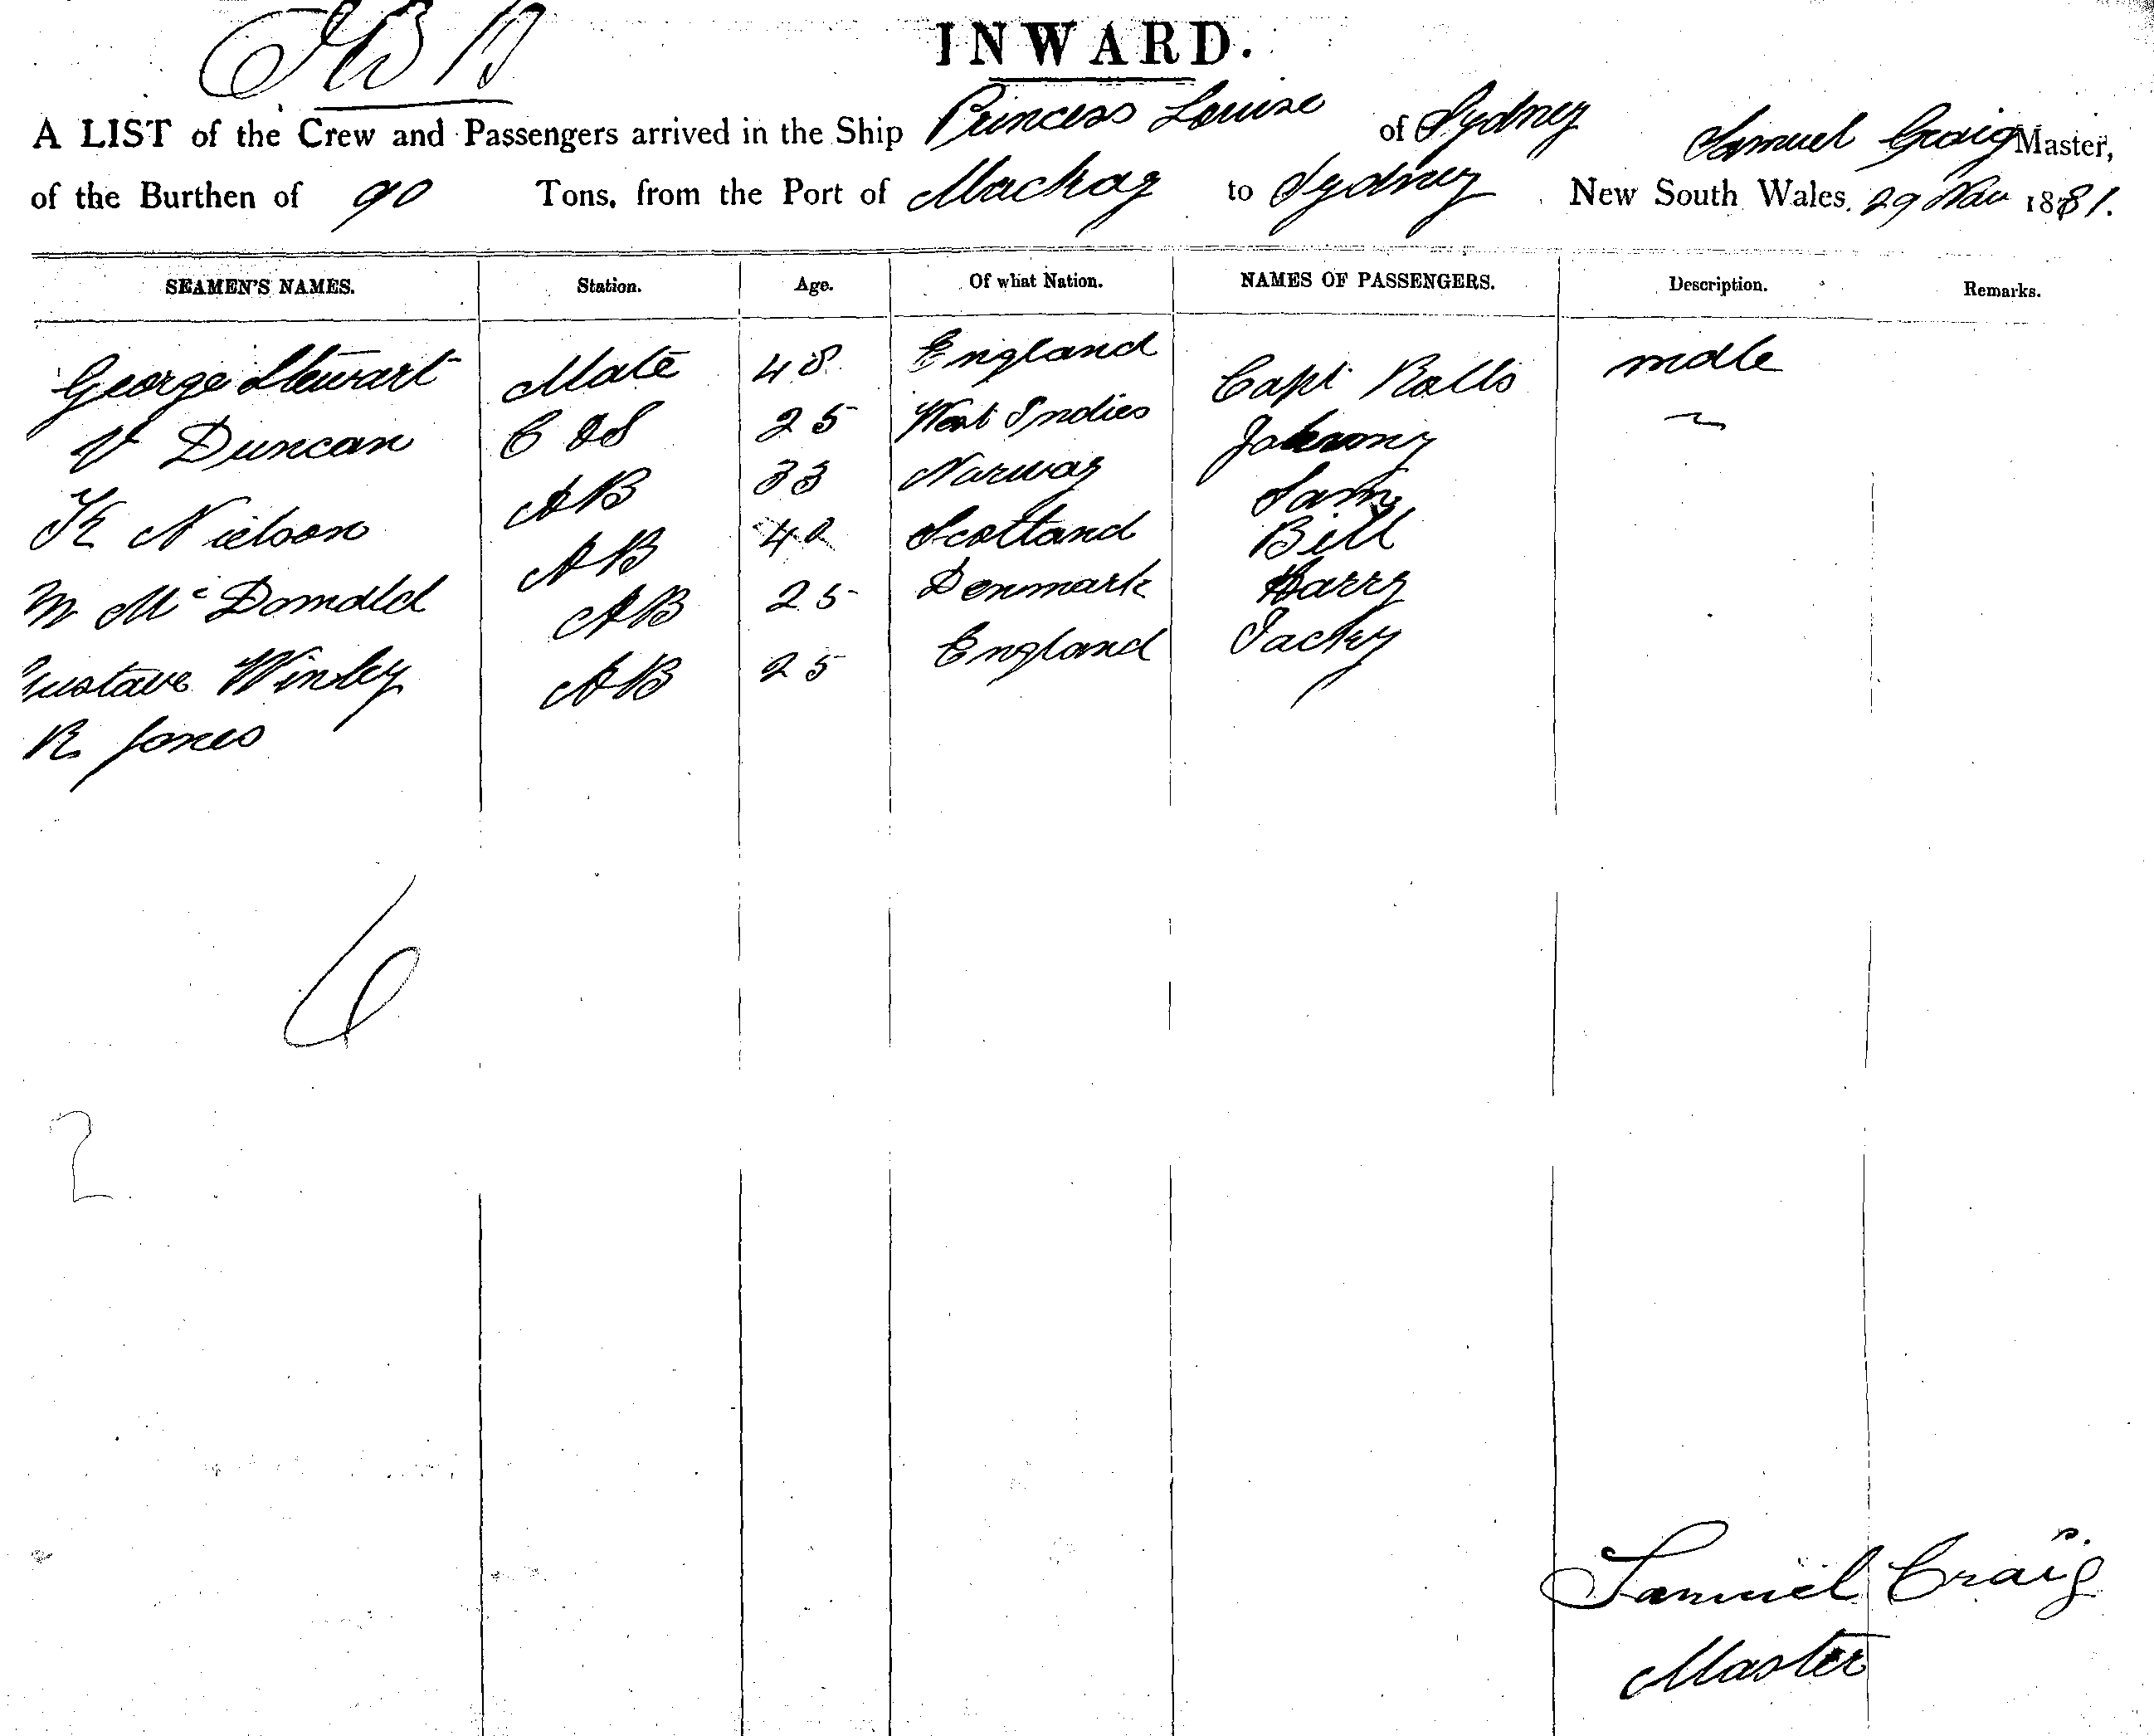 INWARD.
A LIST of the Crew and Passengers arrived in the Ship Princess Louise of Sydney Samuel Craig Master,
of the Burthen of 90 Tons, from the Port of Mackay to Sydney New South Wales. 29 Nov 1881.
SEAMEN'S NAMES. Station. Age. Of what Nation. NAMES OF PASSENGERS. Description. Remarks.
George Stewart Mate 48 England Capt Ralls male
V Duncan C & S 25 West Indies Johnny
K Nielson AB 33 Norway Sam
M McDonald AB 40 Scotland Bill
Gustave Winley AB 25 Denmark Harry
R Jones AB 25 England Jacky
6
2
Samuel Craig
Master